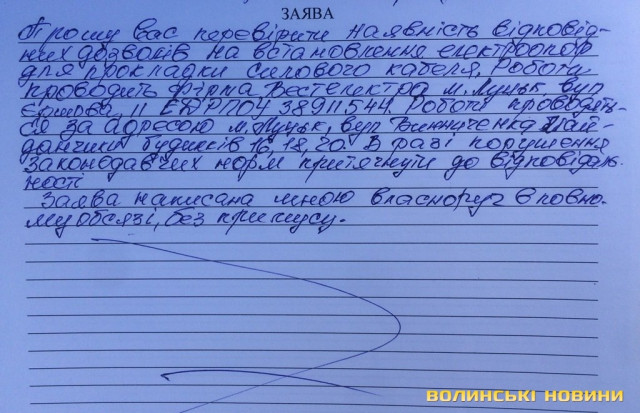 ЗАЯВА
Прошу вас перевірити наявність відповід-
них дозволів на встановлення електроопор
для прокладки силового кабеля. Роботи
проводить фірма Вестелектра м. Луцьк, вул
Єршова, 11 ЕДРПОУ 38911544. Роботи проводять-
ся за адресою м. Луцьк, вул Винниченка Май-
данчики будинків 16, 18, 20. В разі порушення
законодавчих норм притягнути до відповідаль-
ності
Заява написана мною власноруч в повно-
му обсязі, без примусу.
ВОЛИНСЬКІ НОВИНИ